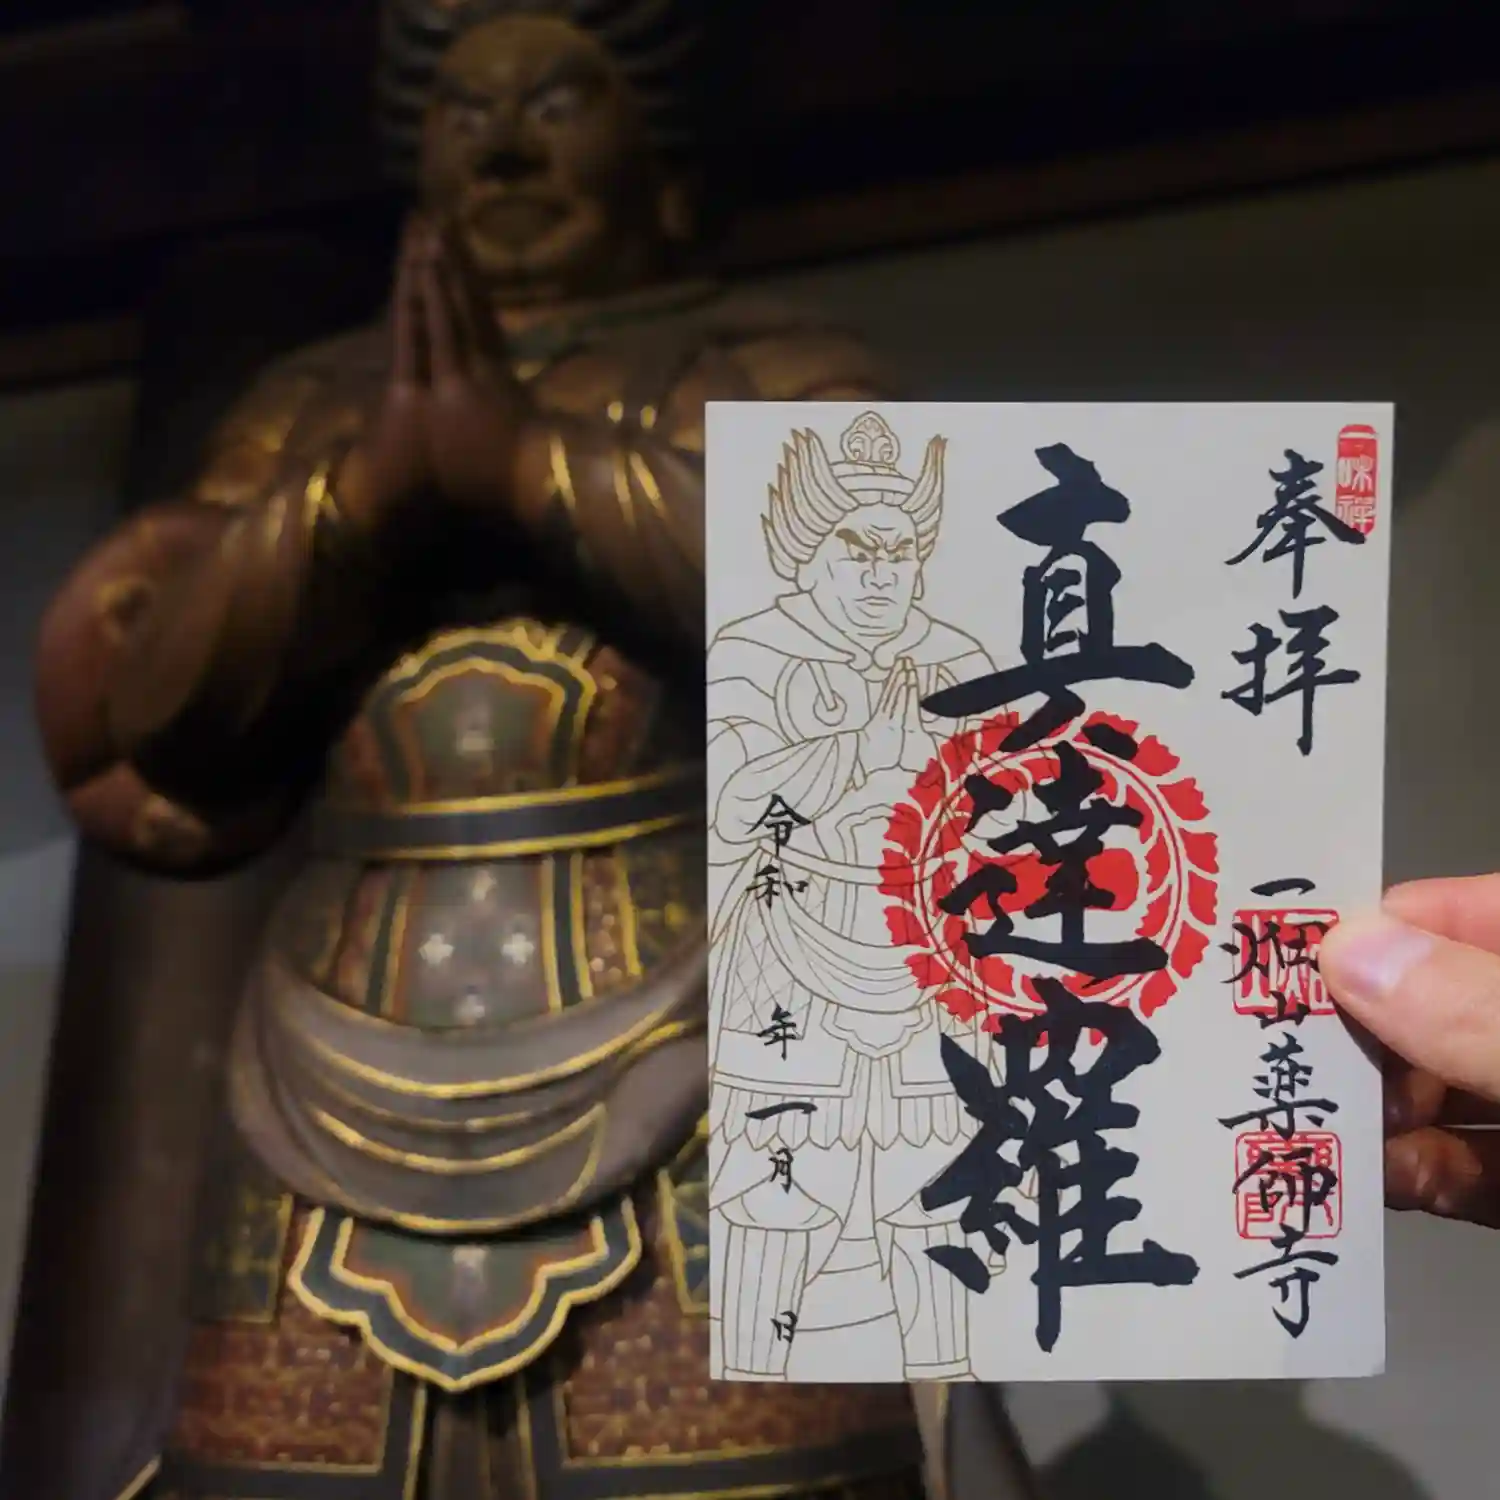 奉拝
一味禅
一畑山薬師寺
真達羅
令和 年 一月 日